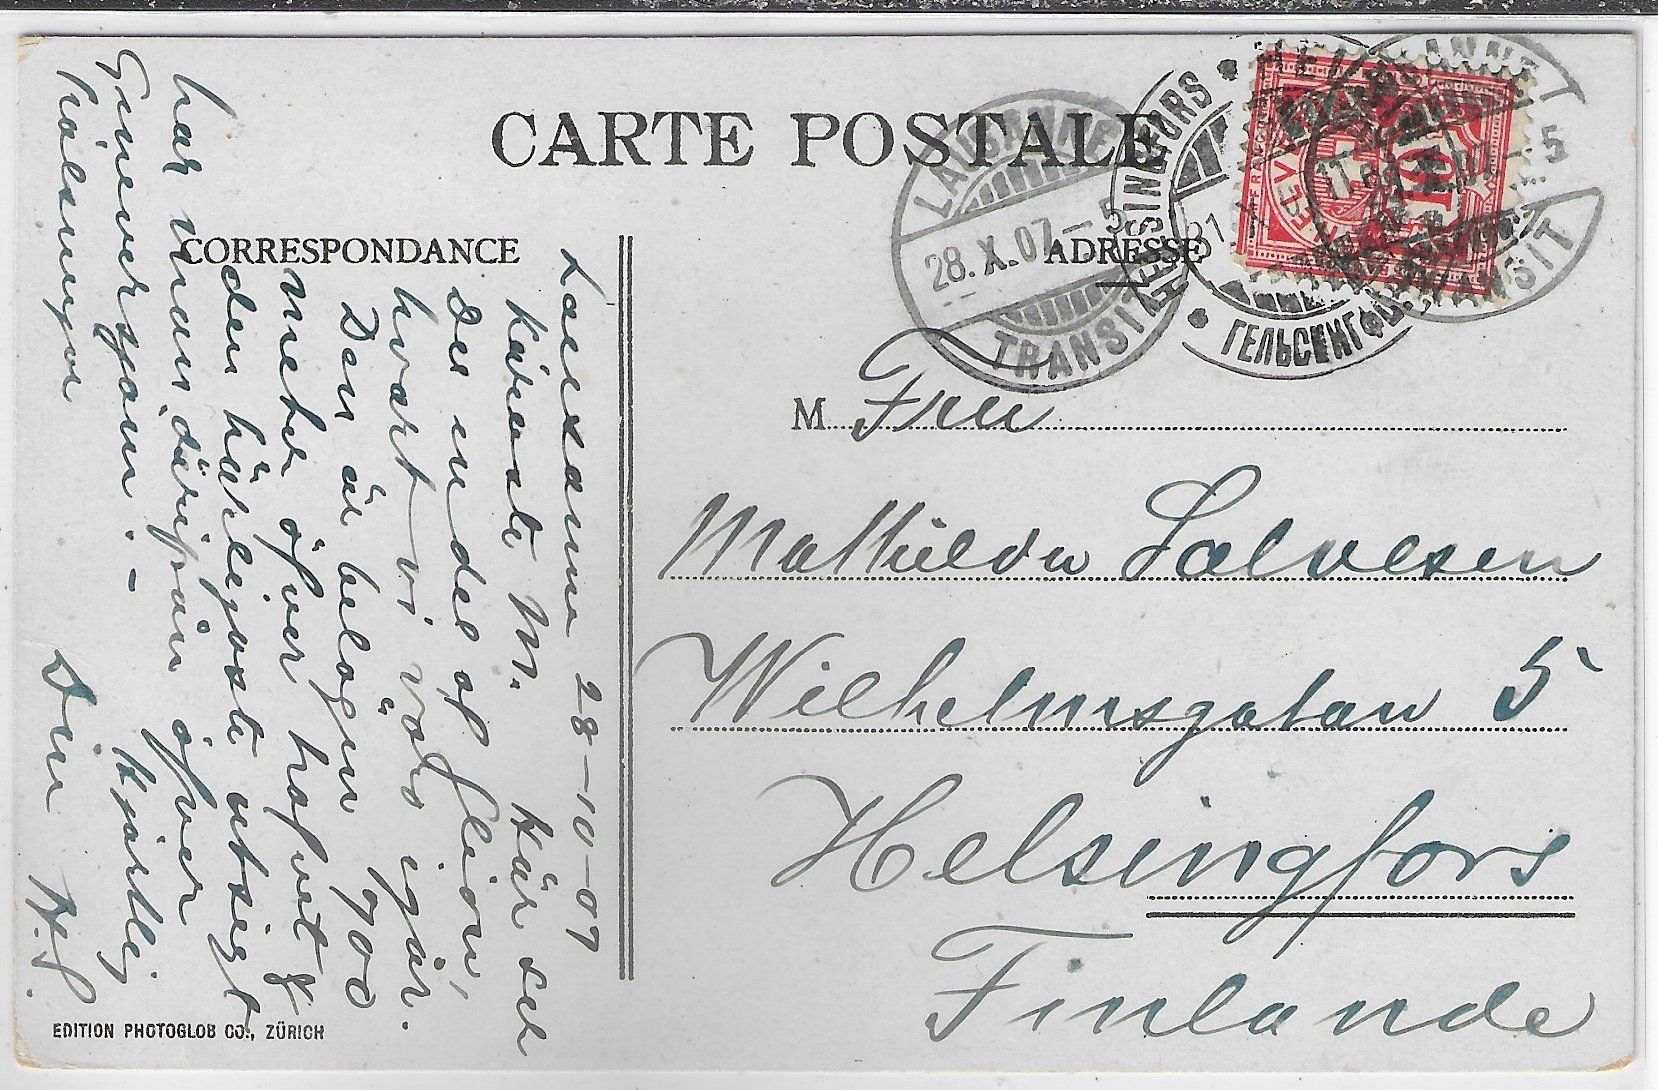 CARTE POSTALE
CORRESPONDANCE
ADRESSE
LAUSANNE
28.X.07.–5
TRANSIT
HELSINGFORS
ГЕЛЬСЕНГФ
TRANSIT
FRANCO
HELVETIA
10
M. Fru
Mathilda Salvesen
Wilhelmsgatan 5
Helsingfors
Finlande
Lausanne 28-10-07
Käraste M. Här ser
Du en del af
hvart vi voro igår.
Den är belägen 900
meter öfver hafvet &
den härligaste utsigt
har man därifrån öfver
Genèversjön. – Hjärtlig
hälsningar Din H.S.
EDITION PHOTOGLOB CO., ZÜRICH